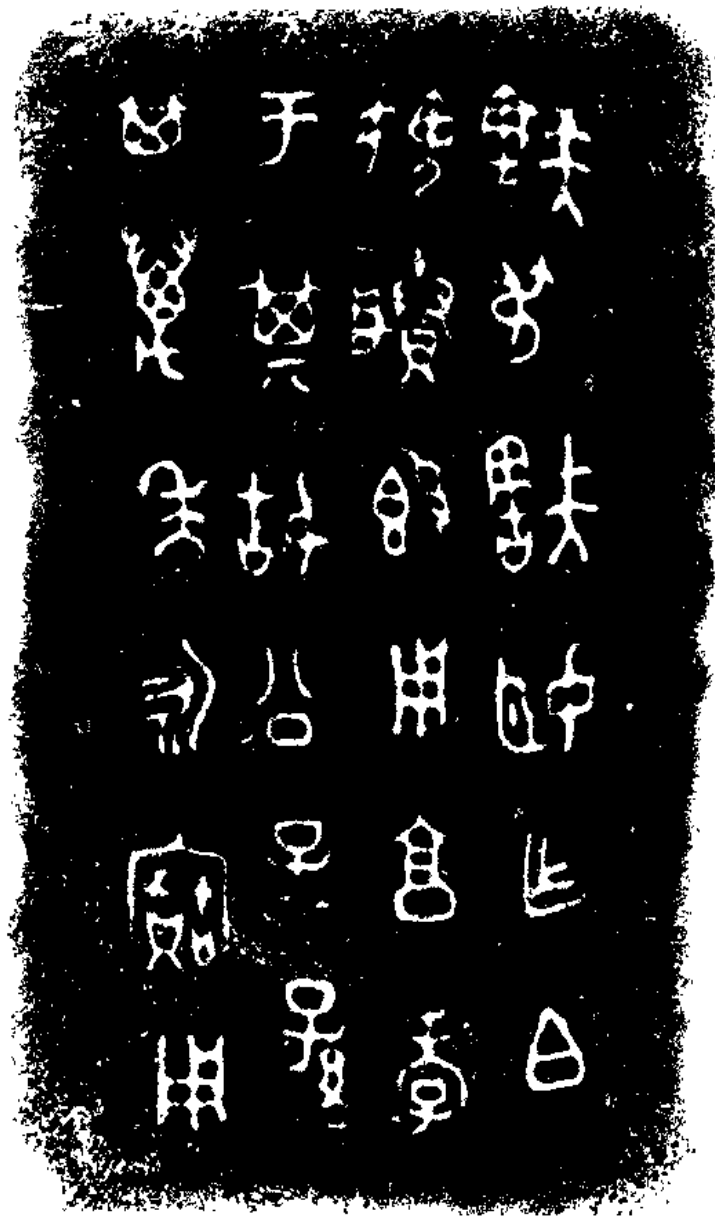 㝬叔㝬姬乍白
媿媵簋用享孝
于其姑公子孫
其萬年永寶用